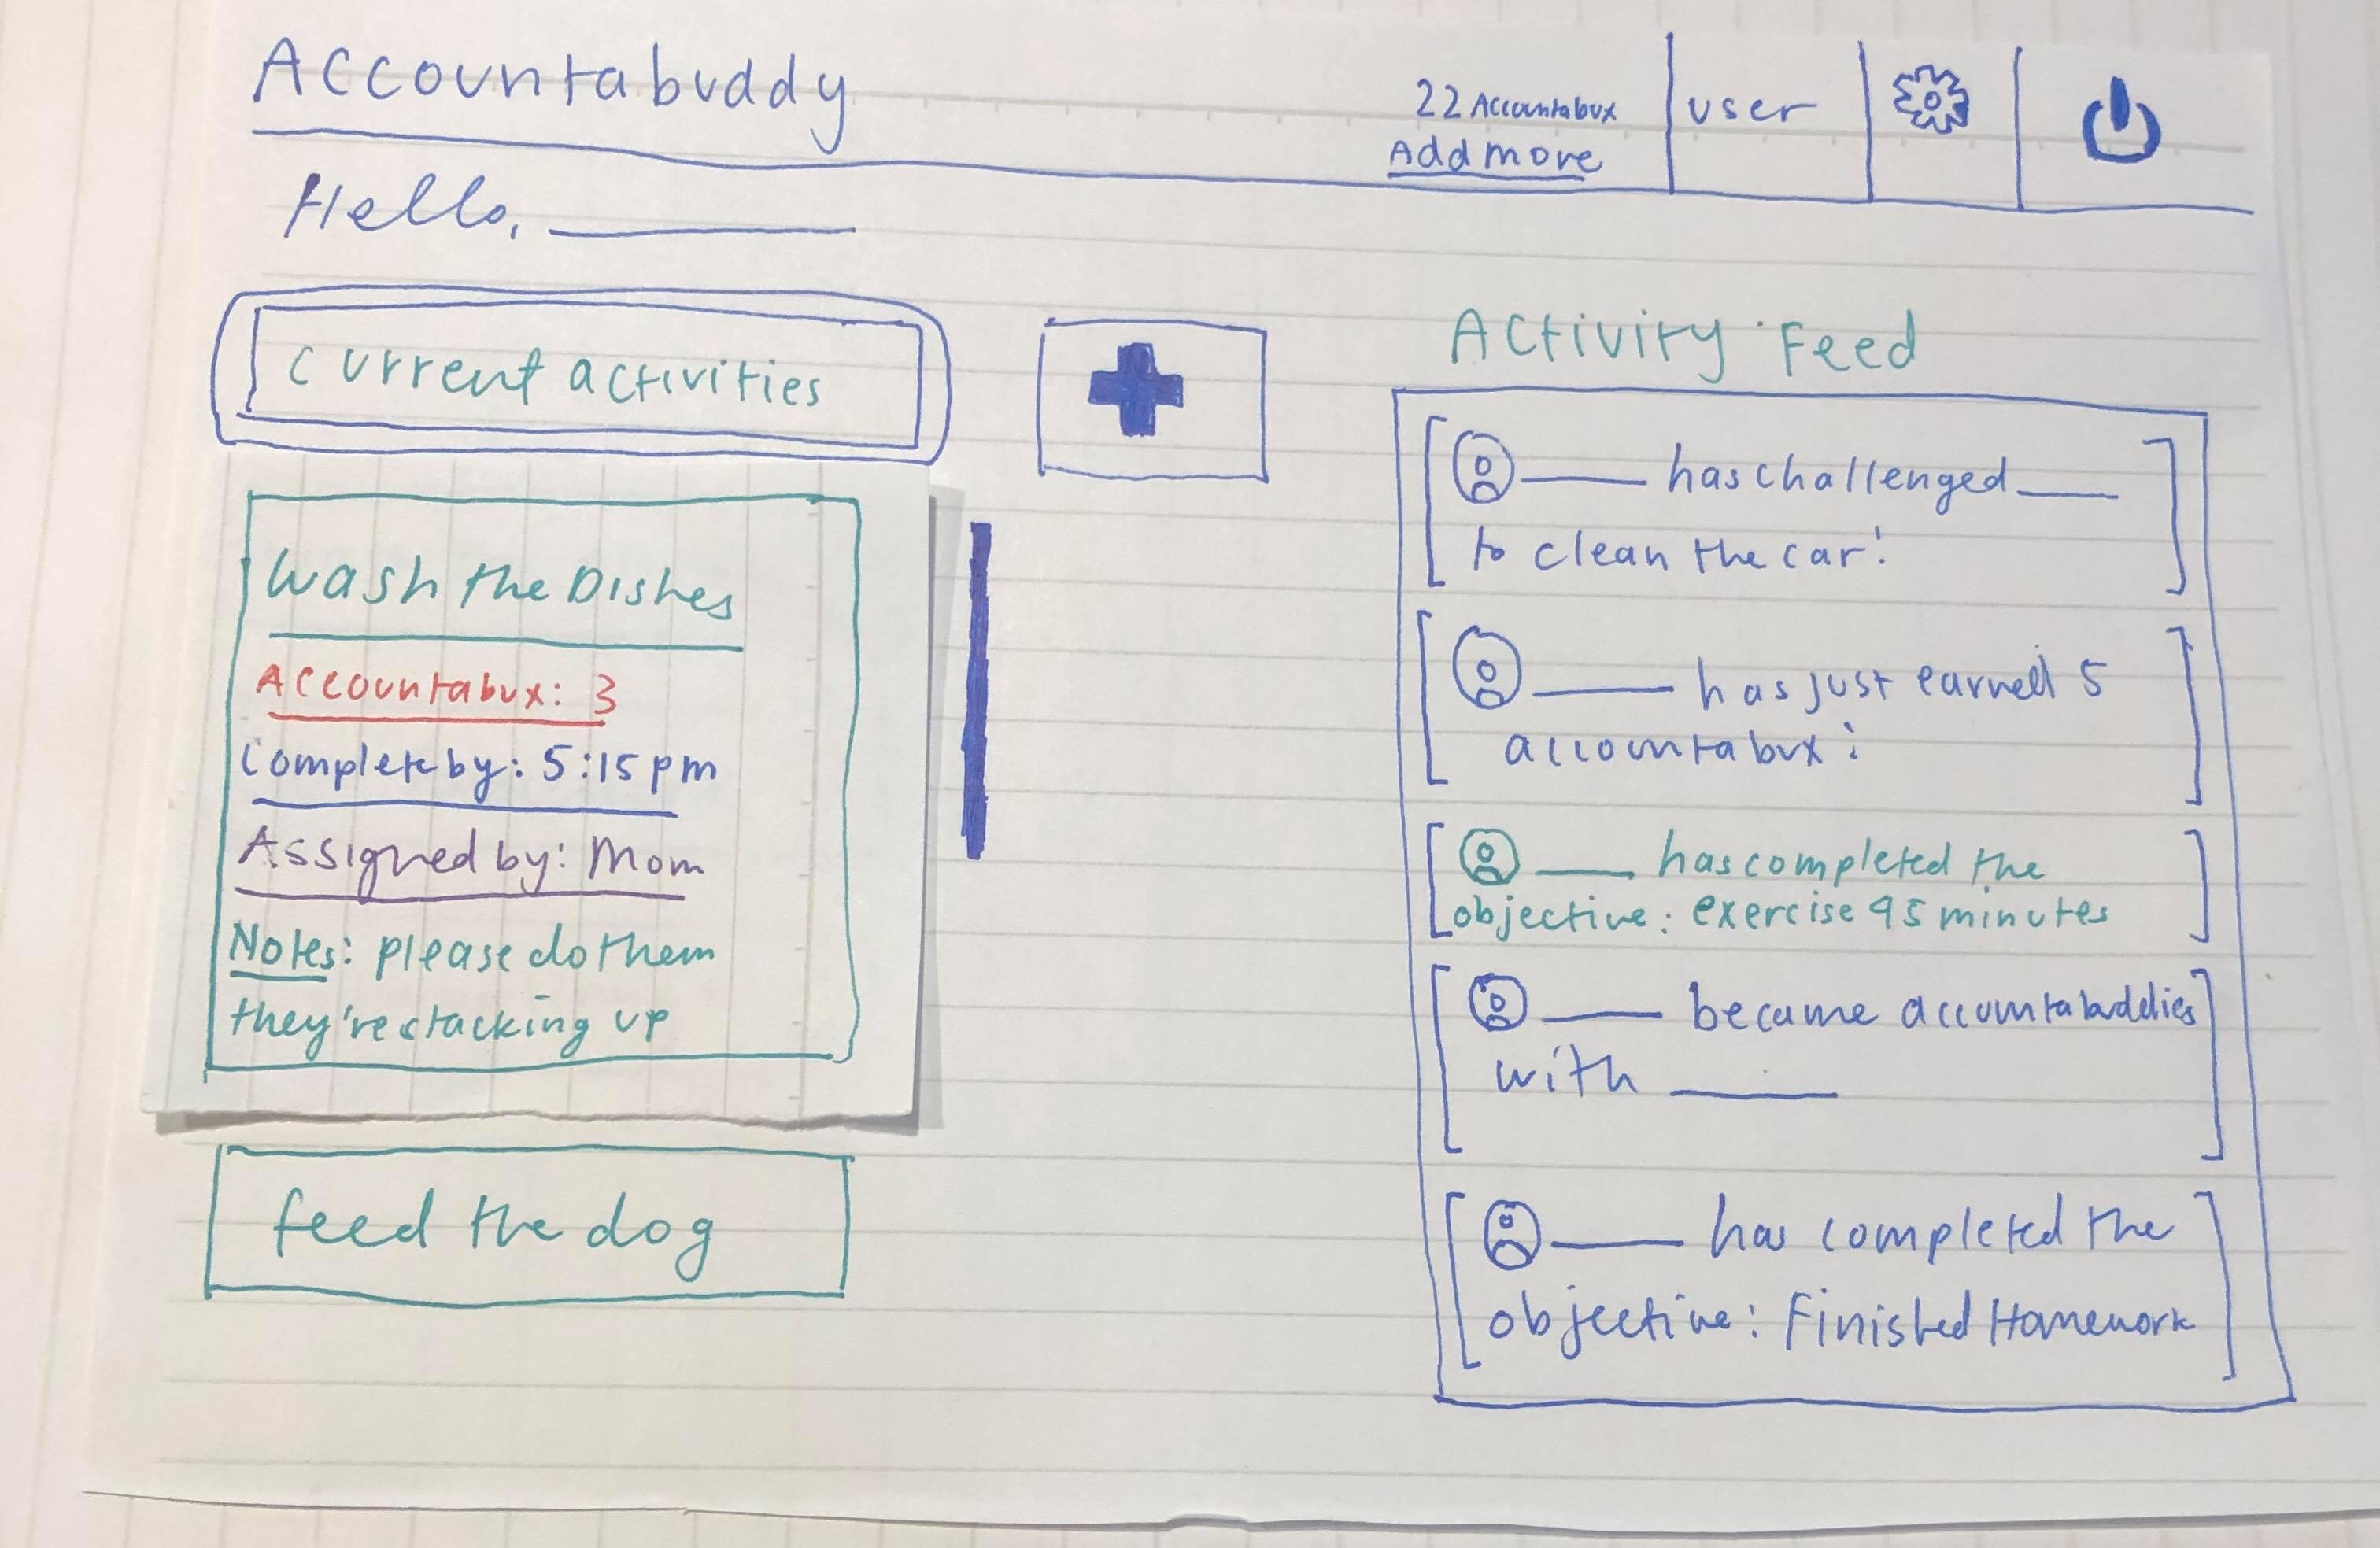 Accountabuddy
22 Accountabux
Add more
user
Hello, ________
Current activities
Wash the Dishes
Accountabux: 3
Complete by: 5:15pm
Assigned by: Mom
Notes: please do them
they're stacking up
feed the dog
Activity Feed
____ has challenged ____
to clean the car!
____ has just earned 5
accountabux!
____ has completed the
objective: exercise 45 minutes
____ became accountabuddies
with ____
____ has completed the
objective: Finished Homework